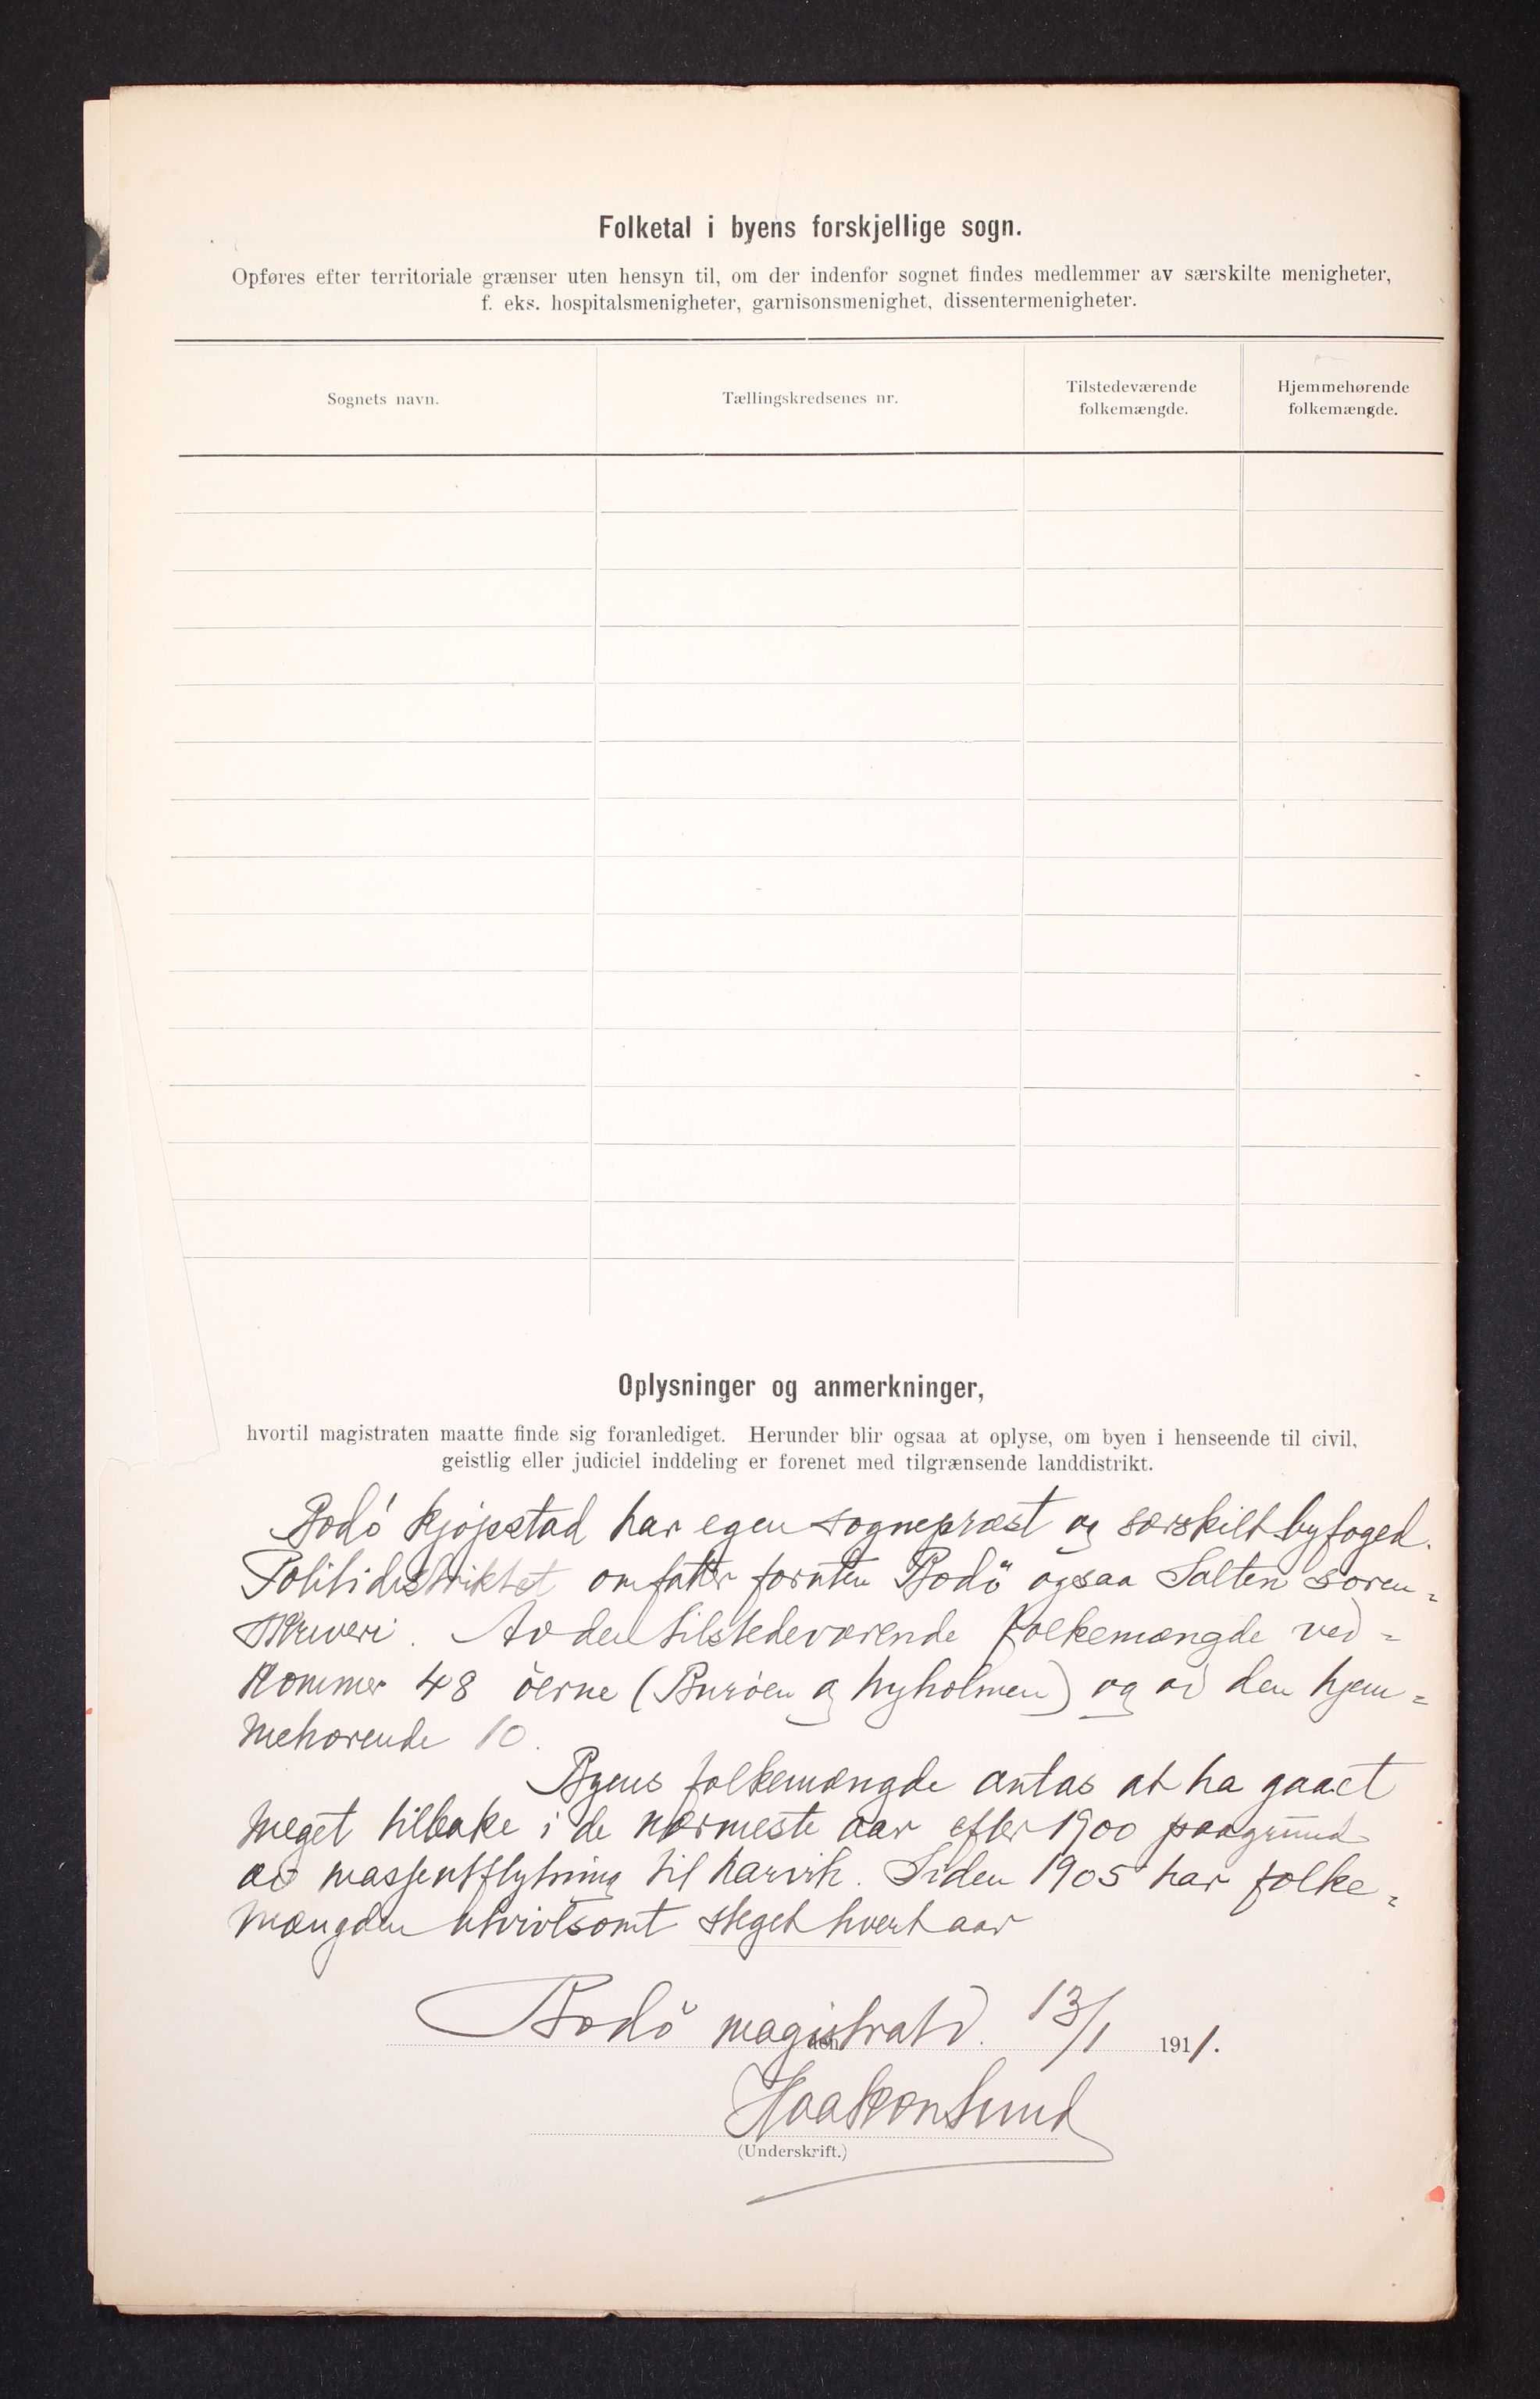 Folketal i byens forskjellige sogn.
Opføres efter territoriale grænser uten hensyn til, om der indenfor sognet findes medlemmer av særskilte menigheter,
f. eks. hospitalsmenigheter, garnisonsmenighet, dissentermenigheter.
Sognets navn. Tællingskredsenes nr. Tilstedeværende folkemængde. Hjemmehørende folkemængde.
Oplysninger og anmerkninger,
hvortil magistraten maatte finde sig foranlediget. Herunder blir ogsaa at oplyse, om byen i henseende til civil,
geistlig eller judiciel inddeling er forenet med tilgrænsende landdistrikt.
Bodø kjøpstad har egen sognepræst og særskilt byfoged.
Politidistriktet omfatter foruten Bodø ogsaa Salten soren-
skriveri. Av den tilstedeværende folkemængde ved-
kommer 48 øerne (Burøen og Nyholmen) og av den hjem-
mehørende 10.
Byens folkemængde antas at ha gaaet
meget tilbake i de nærmeste aar efter 1900 paagrund
av masseutflytning til Narvik. Siden 1905 har folke-
mængden utvivlsomt steget hvert aar
Bodø magistrat d. 13/1 1911.
den
Haakon Lund
(Underskrift.)